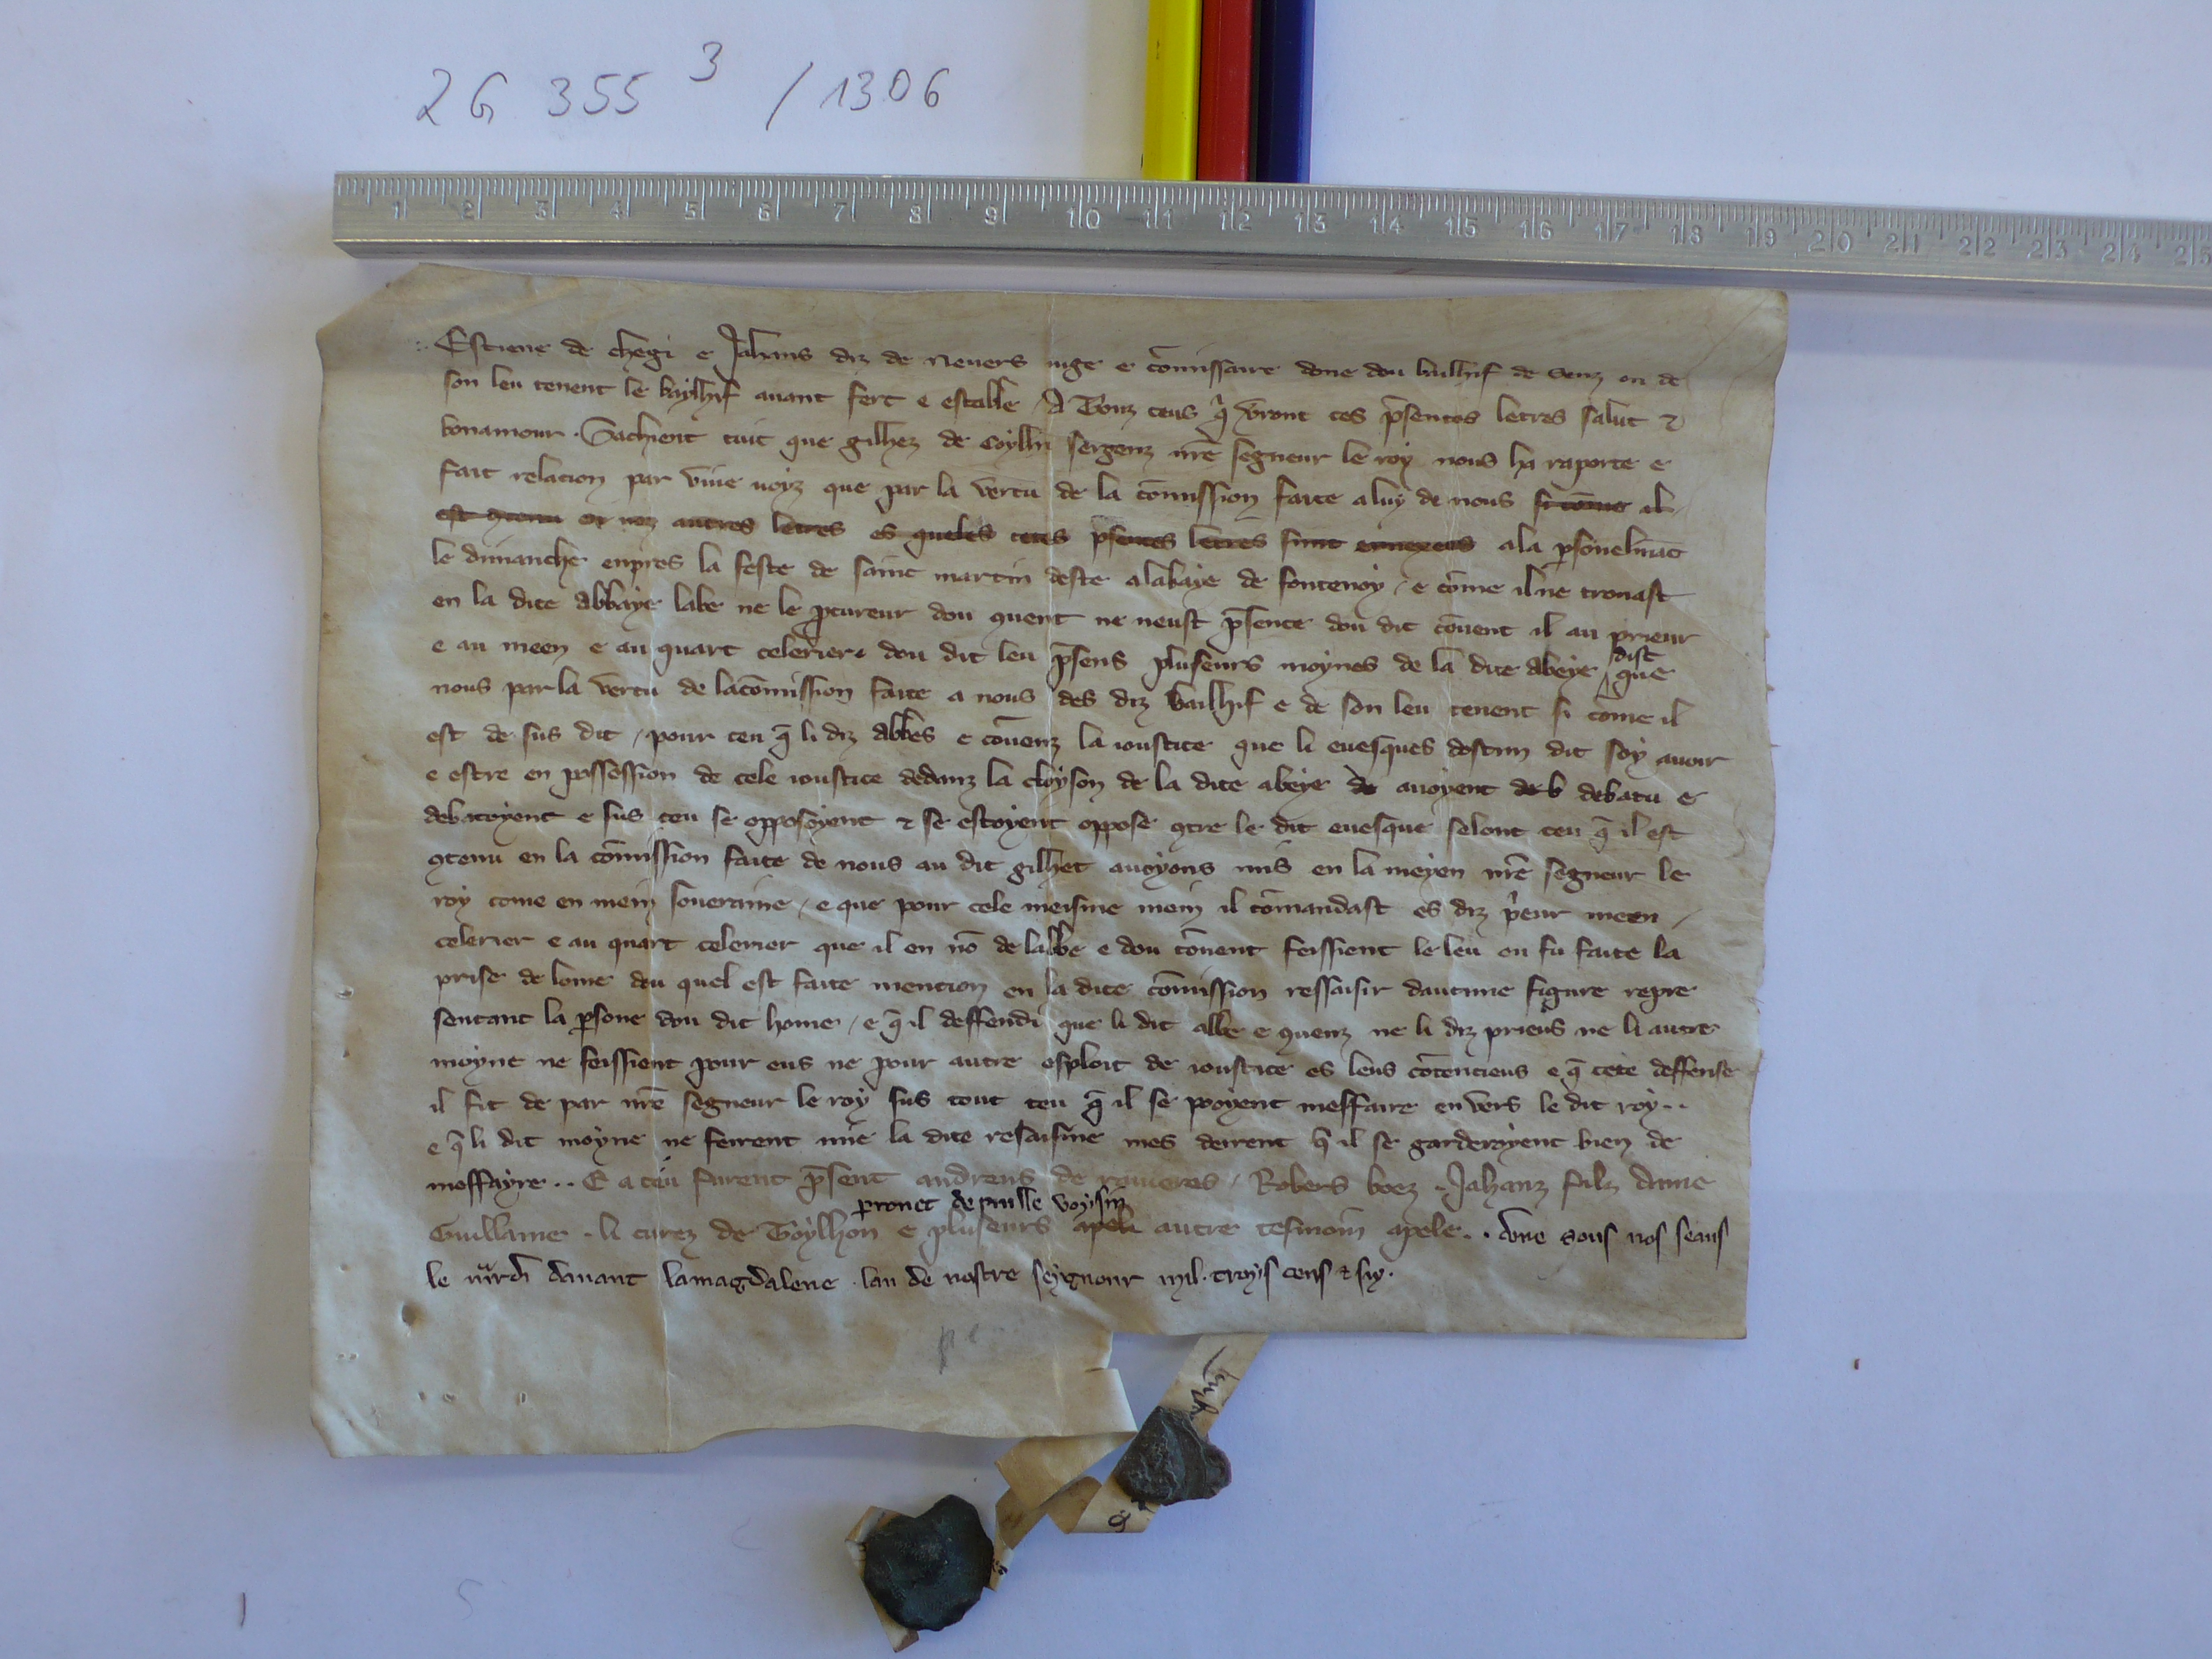 2G 355 3 / 1306
1 2 3 4 5 6 7 8 9 10 11 12 13 14 15 16 17 18 19 20 21 22 23 24 25
Estiene de chegi e Jahans diz de Nevers iuge e cōmissaire done dou bailhif de senz ou de
son leu tenent le baylhif avant fert e estable A Touz ceus q̄ vront ces p̄sentes letres salut &
bonamour . Sachient tuit que gilhez de coylhi sergenz nr̄e segneur le roy nous ha raporte e
fait relacion par vive voyz que par la vertu de la cōmission faite a luy de nous si cōme il
est 9tenu es noz autres letres es queles cetes p̄sentes letres sunt annexees ala p̄sonelmāt
le dimanche enpres la feste de saint martin deste alabaye de fontenoy / e cōme il ne trovast
en la dite abbaye labe ne le p̄cureur dou 9vent ne neust p̄sence dou dit cōvent il au prieur
e au meen e au quart celerier dou dit leu p̄sens pluseurs moynes de la dite abeye / dist que
nous par la vertu de lacōmission faite a nous des diz bailhif e de son leu tenent si cōme il
est de sus dit / pour ceu q̄ li diz abbes e cōvenz la ioustice que li evesques dostun dit soy avoir
e estre en possession de cele ioustice dedanz la cloyson de la dite abeye de avoyent de b debatu e
debatoyent e sus ceu se opposoyent & se estoyent oppose 9tre le dit evesque selont ceu q̄ il est
9tenu en la cōmission faite de nous au dit gilhet avoyons mis en la meyen nr̄e segneur le
roy come en mein soveraine / e que pour cele meisme mein il cōmandast es diz p̄eur meen /
celerier e au quart celerier que il en nō de labbe e dou cōvent feissient le leu ou fu faite la
prise de lome dou quel est faite mention en la dite cōmission ressaisir daucune figure repre
sentant la p̄sone dou dit home / e q̄ il deffendi que li dit abbe e 9venz ne li diz prieus ne li autre
moyne ne feissient pour eus ne pour autre esploit de ioustice es leus cōtencieus e q̄ cete deffense
il fit de par nr̄e segneur le roy sus tout ceu q̄ il se poyent meffaire envers le dit roy ..
e q̄ li dit moyne ne feirent mie la dite resaisine mes deirent q̄ il se garderoyent bien de
meffayre .. E a ceu furent p̄sent andreus de rouveres / Robers boez . Jahanz filz dame
perronet de prulle voysin
Guillame . li curez de Toylhon e pluseurs apele autre tesmoin apele .. done sous nos seaus
le mardi davant lamagdalene . lan de nostre seygnour mil . troys cens & six .